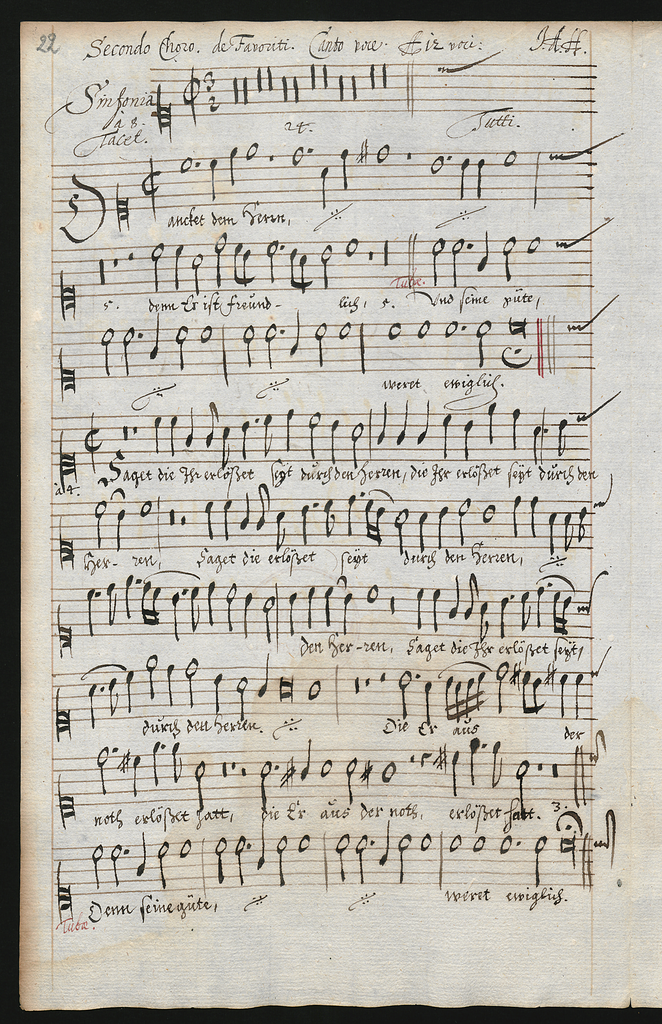 22 Secondo Choro. de Favoriti. Canto voce. A 12 voci:
Sinfonia
à 8.
Tacet.
24. Tutti.
Dancket dem Herrn,
5. denn Er ist freund- lich, 5. Und seine güte,
Tubæ.
weret ewiglich.
Saget die Ihr erlößet seyt durch den Herren, die Ihr erlößet seyt durch den
a 4.
Her- ren, Saget die erlößet seyt durch den Herren,
den Her-ren, Saget die Ihr erlößet seyt,
durch den Herren. Die Er aus der
noth erlößet hatt, die Er aus der noth, erlößet hatt. 3.
Denn seine güte, weret ewiglich.
Tubæ.